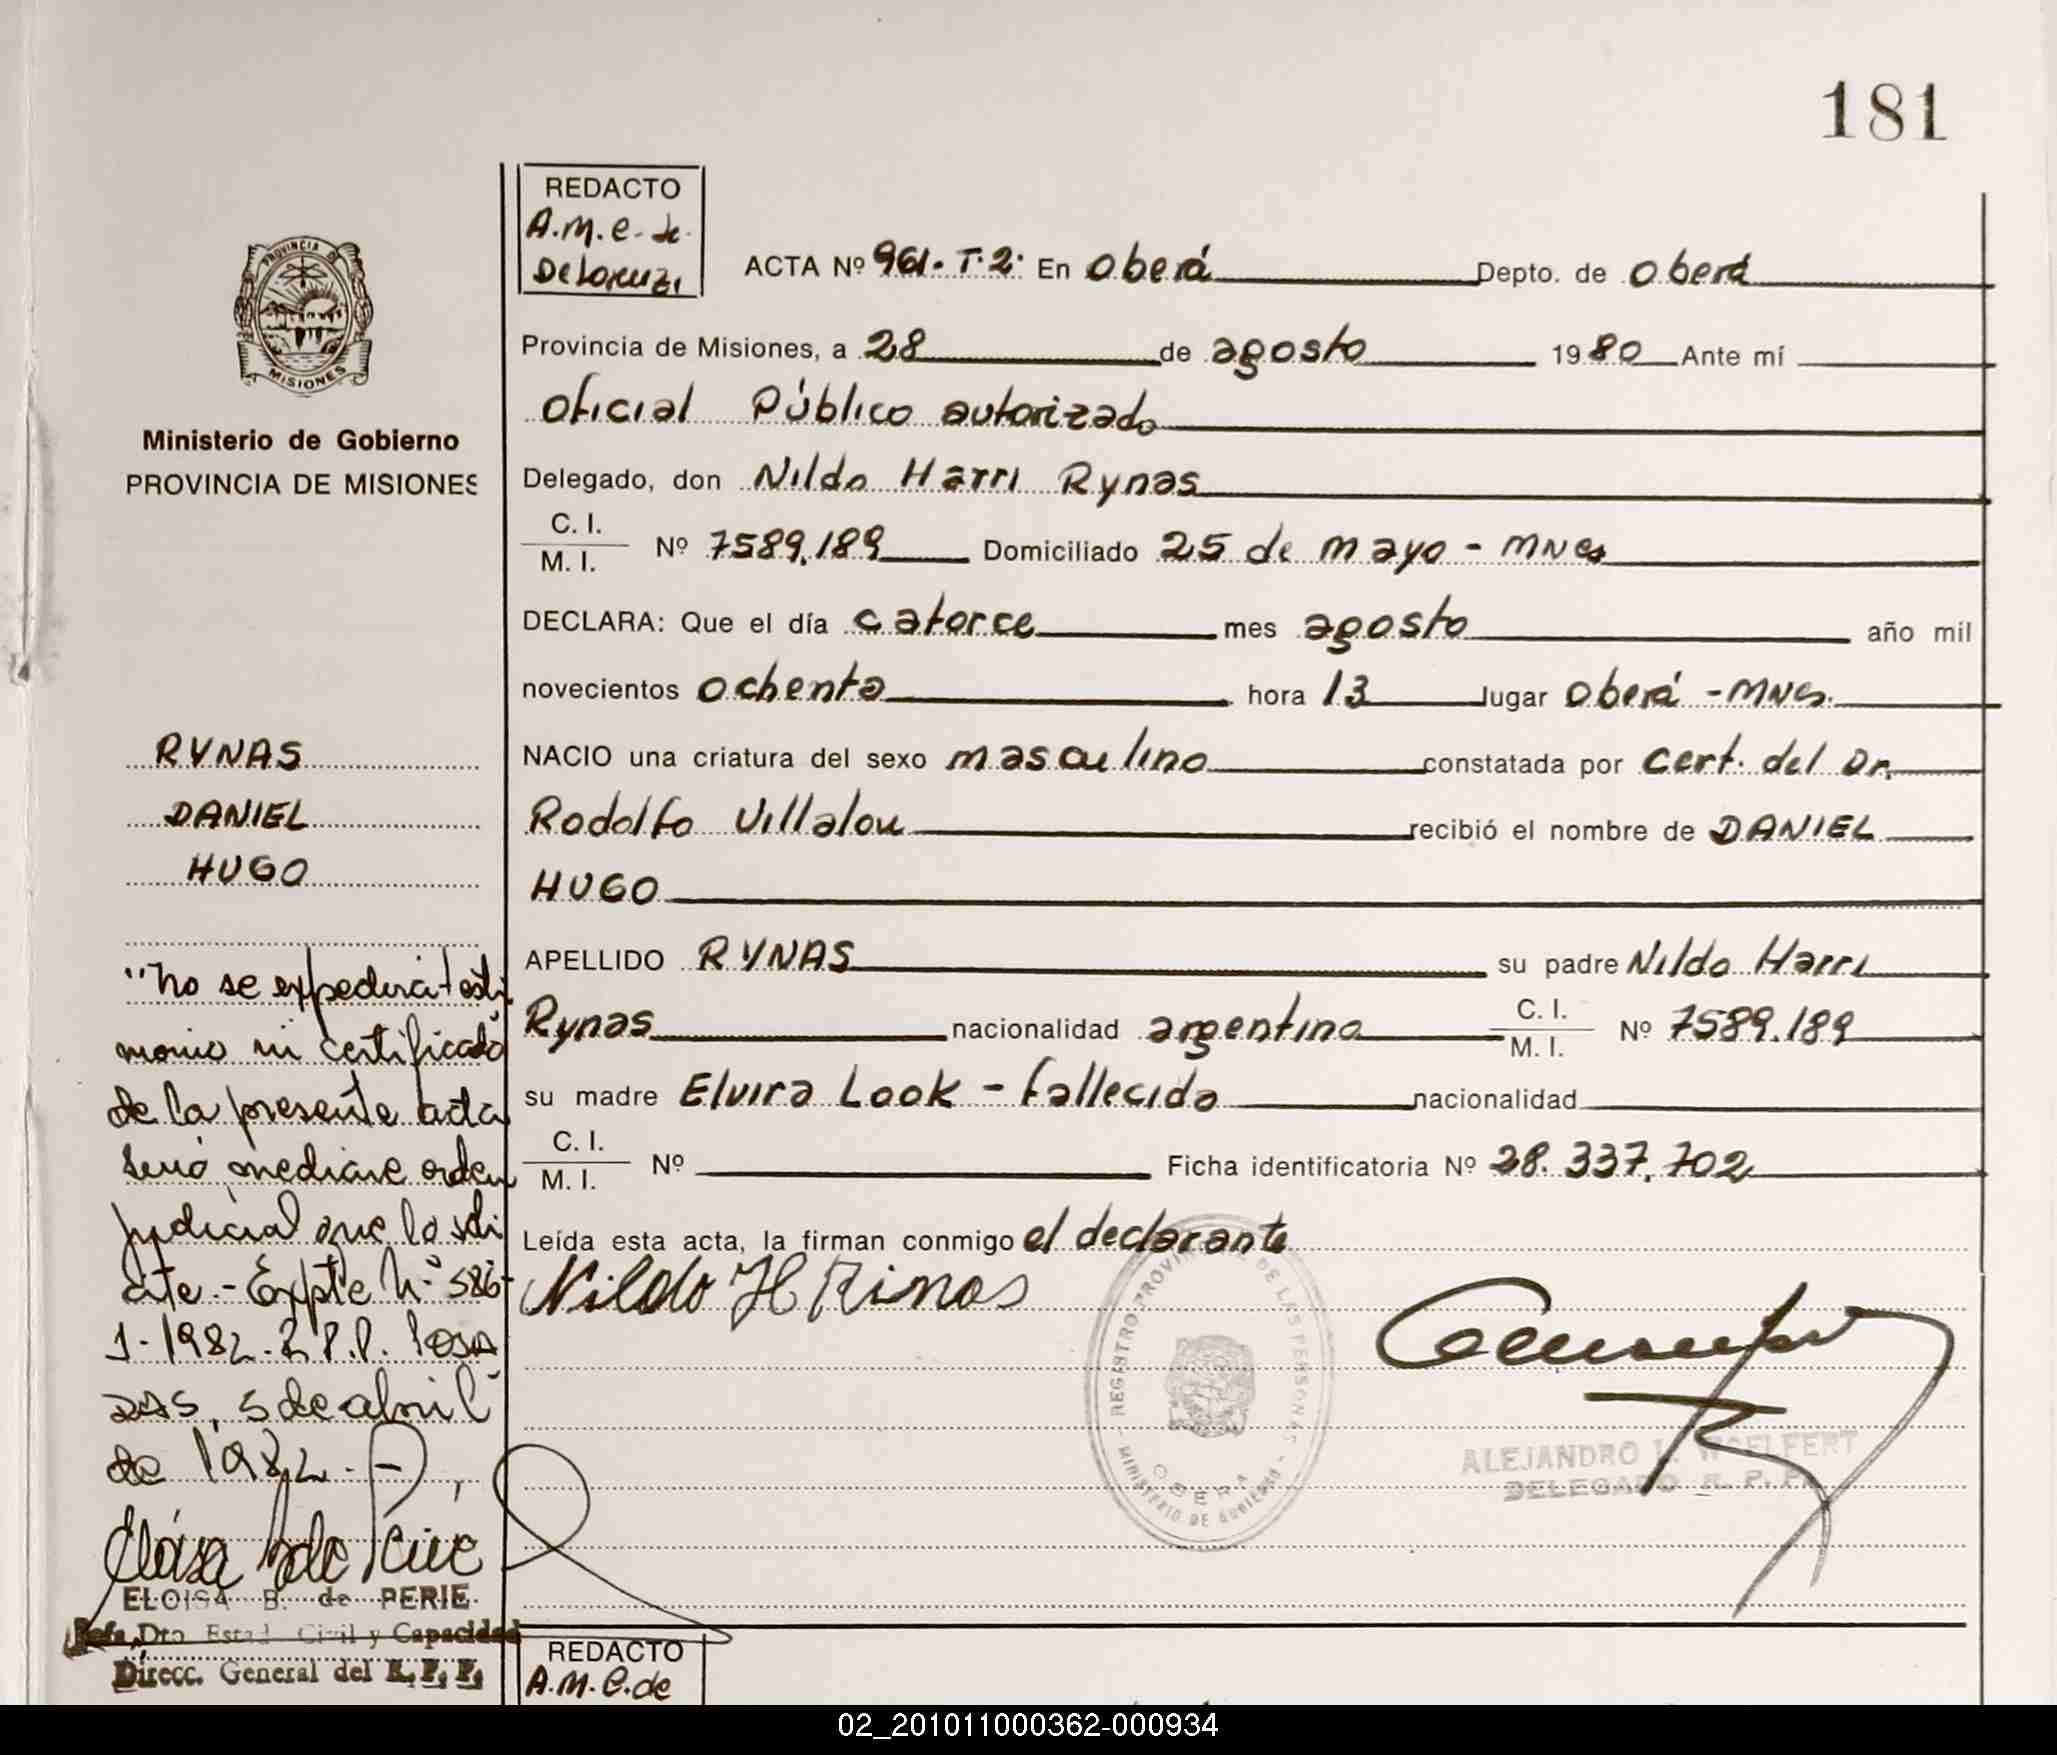 181
REDACTO
A.M.e. de
DeLorenzi
ACTA Nº 961. T:2: En Oberá Depto. de Oberá
Provincia de Misiones, a 28 de agosto 1980 Ante mí
Oficial Público autorizado
Delegado, don Nildo Harri Rynas
C. I.
M. I. Nº 7589.189 Domiciliado 25 de mayo - Mnes
DECLARA: Que el día catorce mes agosto año mil
novecientos ochenta hora 13 lugar Oberá - Mnes.
NACIO una criatura del sexo masculino constatada por cert. del Dr.
Rodolfo Villalou recibió el nombre de DANIEL
HUGO
APELLIDO RYNAS su padre Nildo Harri
Rynas nacionalidad argentina C. I.
M. I. Nº 7589.189
su madre Elvira Look - fallecida nacionalidad
C. I.
M. I. Nº Ficha identificatoria Nº 28.337.702
Leída esta acta, la firman conmigo el declarante
Nildo H Rinas
REGISTRO PROVINCIAL DE LAS PERSONAS - MINISTERIO DE GOBIERNO -
OBERA
ALEJANDRO L. WOELFERT
DELEGADO R. P. P.
PROVINCIA DE
MISIONES
Ministerio de Gobierno
PROVINCIA DE MISIONES
RYNAS
DANIEL
HUGO
"No se expedirá testi
monio ni certificado
de la presente acta
seno mediane orden
judicial que lo soli
cite.- Expte Nº 586-
1-1982. R.P.P. Posa
DAS, 5 de abril
de 1982.-
ELOISA B. de PERIE
Jefa Dto Estad. Civil y Capacidad
Direcc. General del R. P. P.
REDACTO
A.M.e. de
02_201011000362-000934